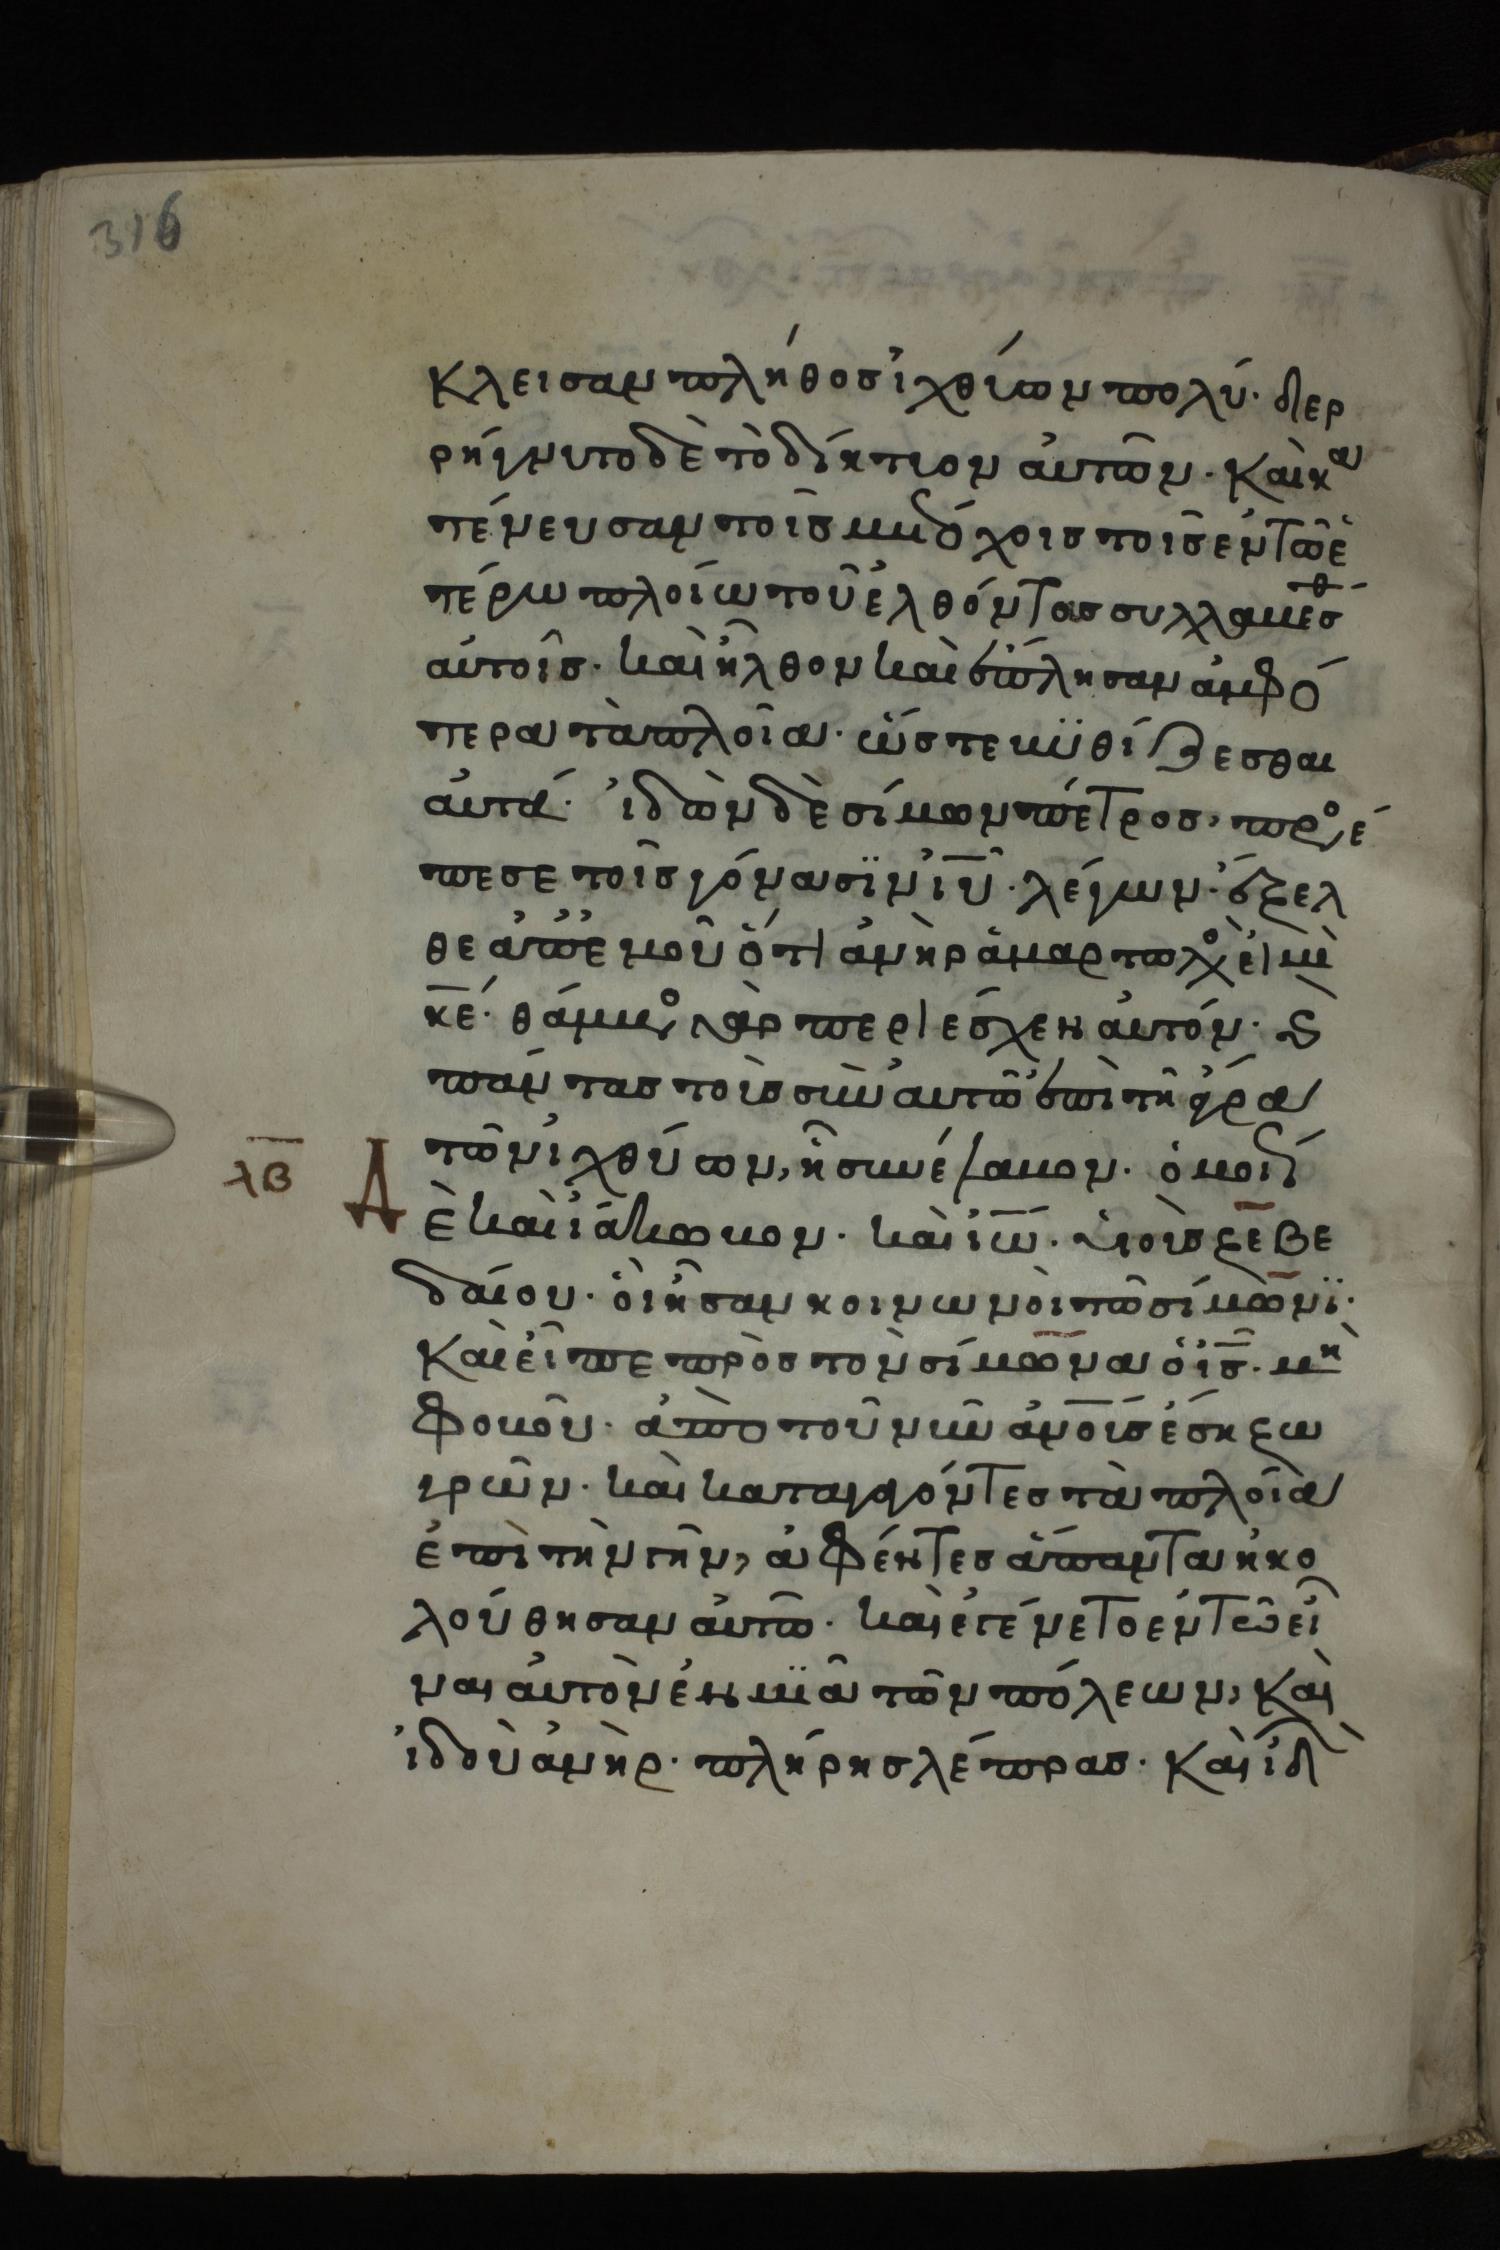 316
κλεισαν πλήθος ἰχθύων πολύ· διερ
ρήγνυτο δὲ τὸ δίκτυον αὐτῶν· καὶ κα
τένευσαν τοῖς μετόχοις τοῖς ἐν τῶ ἑ
τέρω πλοίω τοῦ ἐλθόντας συλλαμβέσθ
αὐτοῖς· καὶ ἦλθον καὶ ἔπλησαν ἀμφό
τερα τὰ πλοῖα· ὥστε βυθίζεσθαι
αὐτά· ἰδὼν δὲ σίμων πέτρος, προσέ
πεσε τοῖς γόνασϊν ἰῦ· λέγων· ἔξελ
θε ἀπ' ἐμοῦ ὅτι ἀνὴρ ἁμαρτωλός εἰμι
κε̄· θάμβος γὰρ περιέσχεν αὐτόν· κ
πάντας τοὺς σὺν αὐτῶ ἐπὶ τῆ ἄγρα
τῶν ἰχθύων, ἧ συνέλαβον· ὁμοί
λβ δὲ καὶ ἰάκωβον· καὶ ἰω̄· υἱοὺς ζεβε
δαίου· οἳ ἦσαν κοινωνοὶ τῶ σίμωνϊ·
καὶ εἶπε πρὸς τὸν σίμωνα ὁ ις̄· μὴ
φοβοῦ· ἀπὸ τοῦ νῦν ἀνο̄ις ἔση ζω
γρῶν· καὶ καταγαγόντες τὰ πλοῖα
ἐπὶ τὴν γῆν, ἀφέντες ἅπαντα ἠκο
λούθησαν αὐτῶ· καὶ ἐγένετο ἐν τῶ εἶ
ναι αὐτὸν ἐν μϊᾶ τῶν πόλεων, καὶ
ἰδοὺ ἀνὴρ· πλήρης λέπρας· καὶ ἰδὼ